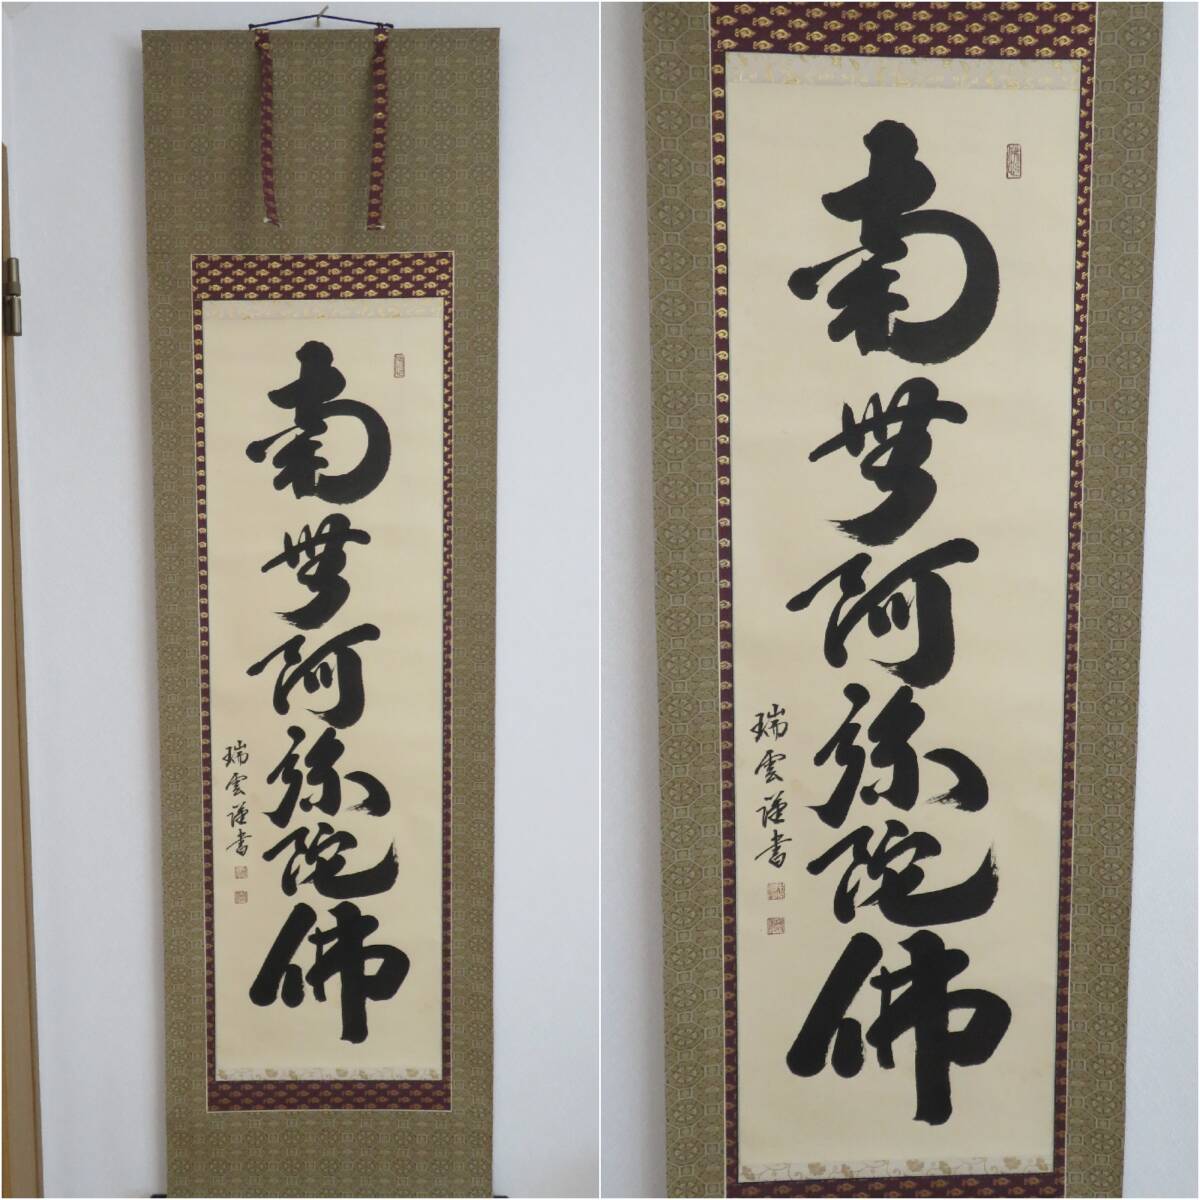 南無阿弥陀佛
瑞雲謹書
南無阿弥陀佛
瑞雲謹書